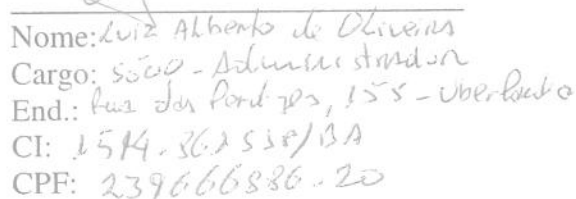 Nome: Luiz Alberto de Oliveira
Cargo: sócio - Administrador
End.: Rua das Perdizes, 155 - Uberlandia
CI: 1514.362 SSP/BA
CPF: 239666886-20